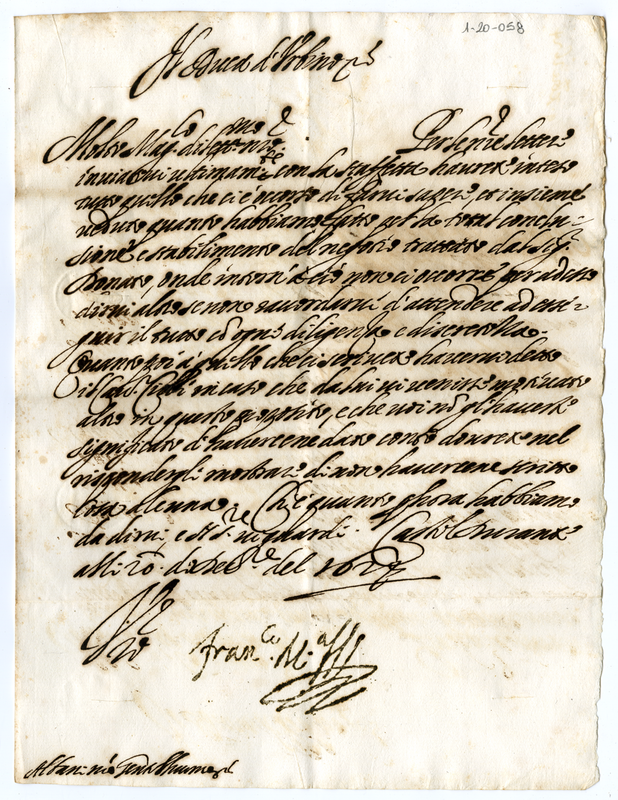 1-20-058
Il Duca d'Urbino
Molto Mag.co dil.mo nro. Per le nre lettere
inviatevi ultimam.te con la staffetta haurete inteso
tutto quello che ci è occorso di farvi sapere, et insieme
veduto quanto habbiamo fatto per la total conclu-
sione e stabilimento del negotio trattato dal Sig.r
Donato, onde intorno a ciò non ci occorre per adesso
dirvi altro se non raccordarvi d'attendere ad essi-
guir il tutto cō ogni diligenza e discretezza.
Quanto poi à quello che ci scrivete havervi detto
il in caso che da lui vi venisse motivato
altro in questo proposito, e che voi nō gl'haverete
significato di havercene dato conto dovrete nel
rispondergli mostrare di non havercene scritto
cosa alcuna. Ch'è quanto p hora habbiamo
da dirvi, e N. S.re vi guardi. Castel Durante
alli 20. di del 162
Fran.co M.a